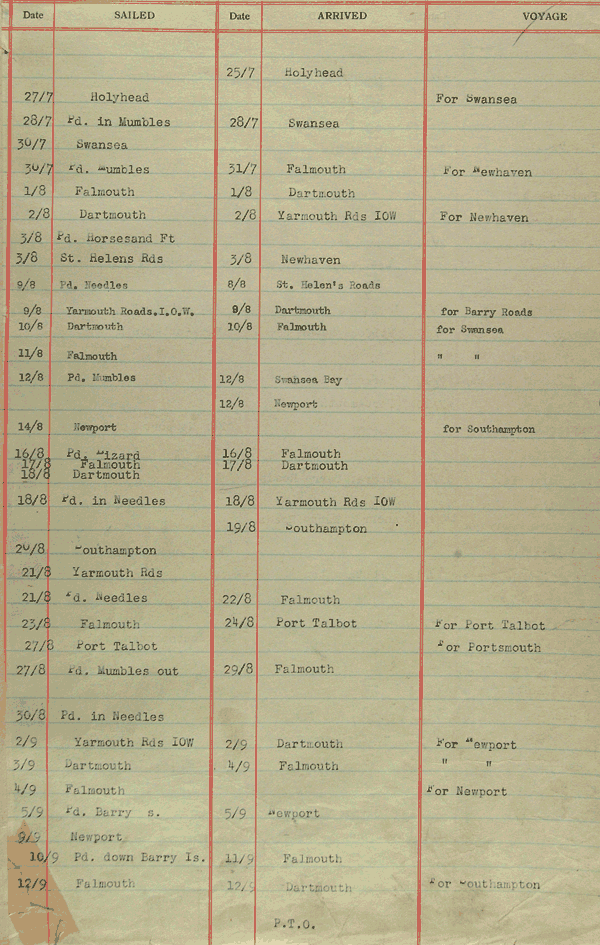 Date SAILED Date ARRIVED VOYAGE
25/7 Holyhead
27/7 Holyhead For Swansea
28/7 Pd. in Mumbles 28/7 Swansea
30/7 Swansea
30/7 Pd. Mumbles 31/7 Falmouth For Newhaven
1/8 Falmouth 1/8 Dartmouth
2/8 Dartmouth 2/8 Yarmouth Rds IOW For Newhaven
3/8 Pd. Horsesand Ft
3/8 St. Helens Rds 3/8 Newhaven
9/8 Pd. Needles 8/8 St. Helen's Roads
9/8 Yarmouth Roads.I.O.W. 9/8 Dartmouth for Barry Roads
10/8 Dartmouth 10/8 Falmouth for Swansea
11/8 Falmouth " "
12/8 Pd. Mumbles 12/8 Swansea Bay
12/8 Newport
14/8 Newport for Southampton
16/8 Pd. Lizard 16/8 Falmouth
17/8 Falmouth 17/8 Dartmouth
18/8 Dartmouth
18/8 Pd. in Needles 18/8 Yarmouth Rds IOW
19/8 Southampton
20/8 Southampton
21/8 Yarmouth Rds
21/8 Pd. Needles 22/8 Falmouth
23/8 Falmouth 24/8 Port Talbot For Port Talbot
27/8 Port Talbot For Portsmouth
27/8 Pd. Mumbles out 29/8 Falmouth
30/8 Pd. in Needles
2/9 Yarmouth Rds IOW 2/9 Dartmouth For Newport
3/9 Dartmouth 4/9 Falmouth " "
4/9 Falmouth For Newport
5/9 Pd. Barry s. 5/9 Newport
9/9 Newport
10/9 Pd. down Barry Is. 11/9 Falmouth
12/9 Falmouth 12/9 Dartmouth For Southampton
P.T.O.